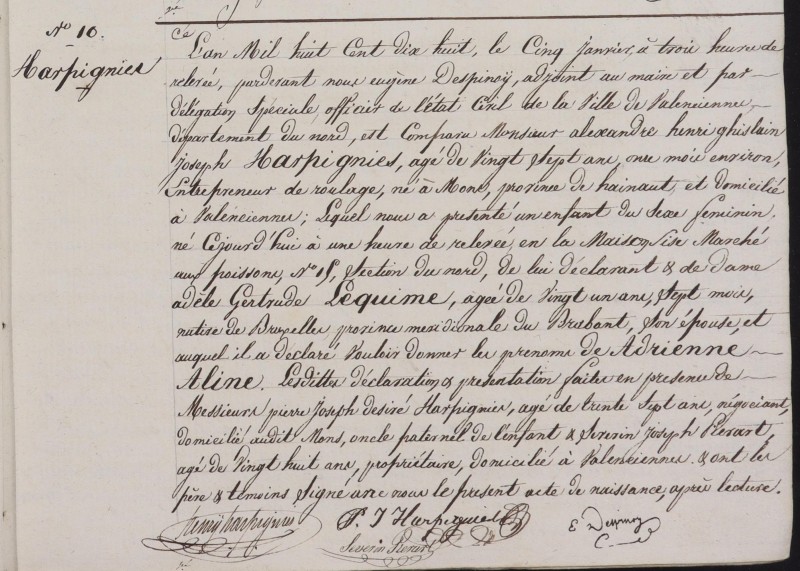 No 10.
Harpignies
L'an Mil huit Cent dix huit, le Cinq janvier, à trois heures de
relevée, pardevant nous eugène Despinoy, adjoint au maire et par
délégation Spéciale, officier de l'état Civil de la Ville de Valenciennes,
département du nord, est Comparu Monsieur alexandre henri ghislain
joseph Harpignies, agé de Vingt Sept ans, onze mois environ,
Entrepreneur de roulage, né à Mons, province de hainaut, et domicilié
à Valenciennes; Lequel nous a presenté un enfant du Sexe feminin,
né Cejourd'hui à une heure de relevée, en la Maison Sise Marché
aux poissons, No 15, Section du nord, de lui déclarant & de Dame
adèle Gertrude Lequime, agée de Vingt un ans, Sept mois,
native de Bruxelles province meridionale du Brabant, Son épouse, et
auquel il a declaré Vouloir donner les prenoms de Adrienne
Aline. Lesdittes déclaration & presentation faites en presence de
Messieurs pierre Joseph desiré Harpignies, agé de trente Sept ans, négociant,
domicilié audit Mons, oncle paternel de l'enfant & Severin Joseph Pierart,
agé de Vingt huit ans, propriétaire, domicilié à Valenciennes. & ont les
père & temoins Signé avec nous le present acte de naissance, après lecture.
henry harpignies
P. J Harpignies
E Despinoy
Severin Pierart